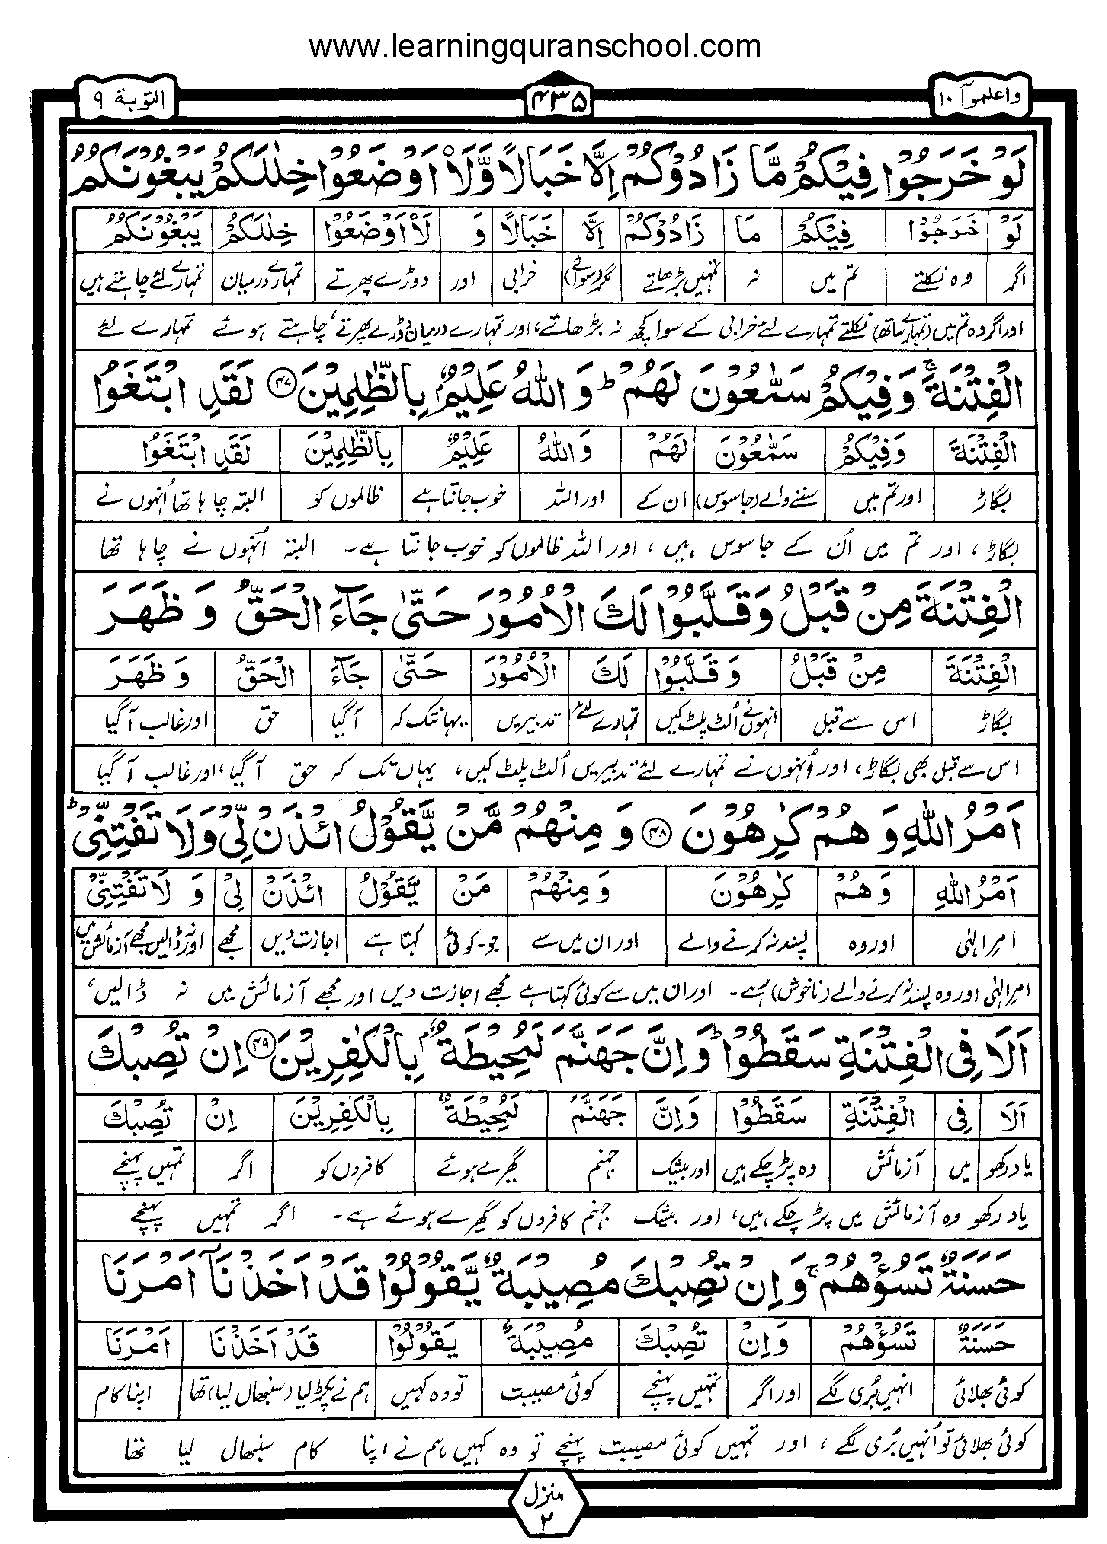 www.learningquranschool.com
واعلموٓا ١٠
۴۳۵
التوبة ٩
لَوْ خَرَجُوْا فِيْكُمْ مَّا زَادُوْكُمْ اِلَّا خَبَالًا وَّلَا۠اَوْضَعُوْا خِلٰلَكُمْ يَبْغُوْنَكُمُ
لَوْ خَرَجُوْا فِيْكُمْ مَا زَادُوْكُمْ اِلَّا خَبَالًا وَ لَا۠اَوْضَعُوْا خِلٰلَكُمْ يَبْغُوْنَكُمُ
اگر وہ نکلتے تم میں نہ تمہیں بڑھاتے مگر(سوائے) خرابی اور دوڑے پھرتے تمہارے درمیان تمہارے لئے چاہتے ہیں
اور اگر وہ تم میں (تمہارے ساتھ) نکلتے تمہارے لئے خرابی کے سوا کچھ نہ بڑھاتے، اور تمہارے درمیان دوڑے پھرتے، چاہتے ہوئے تمہارے لئے
الْفِتْنَةَ ۚ وَفِيْكُمْ سَمّٰعُوْنَ لَهُمْ ؕ وَاللّٰهُ عَلِيْمٌۢ بِالظّٰلِمِيْنَ ۴۷ لَقَدِ ابْتَغَوُا
الْفِتْنَةَ وَفِيْكُمْ سَمّٰعُوْنَ لَهُمْ وَاللّٰهُ عَلِيْمٌۢ بِالظّٰلِمِيْنَ لَقَدِ ابْتَغَوُا
بگاڑ اور تم میں سننے والے (جاسوس) ان کے اور اللہ خوب جانتا ہے ظالموں کو البتہ چاہا تھا اُنہوں نے
بگاڑ، اور تم میں اُن کے جاسوس ہیں، اور اللہ ظالموں کو خوب جانتا ہے۔ البتہ اُنہوں نے چاہا تھا
الْفِتْنَةَ مِنْ قَبْلُ وَقَلَّبُوْا لَكَ الْاُمُوْرَ حَتّٰى جَآءَ الْحَقُّ وَ ظَهَرَ
الْفِتْنَةَ مِنْ قَبْلُ وَ قَلَّبُوْا لَكَ الْاُمُوْرَ حَتّٰى جَآءَ الْحَقُّ وَ ظَهَرَ
بگاڑ اس سے قبل انہوں نے اُلٹ پلٹ کیں تمہارے لئے تدبیریں یہانتک کہ آگیا حق اور غالب آگیا
اس سے قبل بھی بگاڑ، اور اُنہوں نے تمہارے لئے تدبیریں اُلٹ پلٹ کیں، یہاں تک کہ حق آگیا، اور غالب آگیا
اَمْرُ اللّٰهِ وَ هُمْ كٰرِهُوْنَ ۴۸ وَ مِنْهُمْ مَّنْ يَّقُوْلُ ائْذَنْ لِّيْ وَلَا تَفْتِنِّيْ ؕ
اَمْرُ اللّٰهِ وَ هُمْ كٰرِهُوْنَ وَ مِنْهُمْ مَنْ يَّقُوْلُ ائْذَنْ لِيْ وَ لَا تَفْتِنِّيْ
امرِ الٰہی اور وہ پسند نہ کرنے والے اور ان میں سے جو۔کوئی کہتا ہے اجازت دیں مجھے اور نہ ڈالیں مجھے آزمائش میں
امرِ الٰہی اور وہ پسند نہ کرنے والے (ناخوش) رہے۔ اور ان میں سے کوئی کہتا ہے مجھے اجازت دیں اور مجھے آزمائش میں نہ ڈالیں،
اَلَا فِي الْفِتْنَةِ سَقَطُوْا ؕ وَاِنَّ جَهَنَّمَ لَمُحِيْطَةٌۢ بِالْكٰفِرِيْنَ ۴۹ اِنْ تُصِبْكَ
اَلَا فِي الْفِتْنَةِ سَقَطُوْا وَاِنَّ جَهَنَّمَ لَمُحِيْطَةٌۢ بِالْكٰفِرِيْنَ اِنْ تُصِبْكَ
یاد رکھو میں آزمائش وہ پڑ چکے ہیں اور بیشک جہنم گھیرے ہوئے کافروں کو اگر تمہیں پہنچے
یاد رکھو وہ آزمائش میں پڑ چکے ہیں، اور بیشک جہنم کافروں کو گھیرے ہوئے ہے۔ اگر تمہیں پہنچے
حَسَنَةٌ تَسُؤْهُمْ ۚ وَاِنْ تُصِبْكَ مُصِيْبَةٌ يَّقُوْلُوْا قَدْ اَخَذْنَآ اَمْرَنَا
حَسَنَةٌ تَسُؤْهُمْ وَاِنْ تُصِبْكَ مُصِيْبَةٌ يَقُوْلُوْا قَدْ اَخَذْنَا اَمْرَنَا
کوئی بھلائی انہیں بُری لگے اور اگر تمہیں پہنچے کوئی مصیبت تو وہ کہیں ہم نے پکڑ لیا (سنبھال لیا) تھا اپنا کام
کوئی بھلائی تو اُنہیں بُری لگے، اور تمہیں کوئی مصیبت پہنچے تو وہ کہیں ہم نے اپنا کام سنبھال لیا تھا
منزل
۲